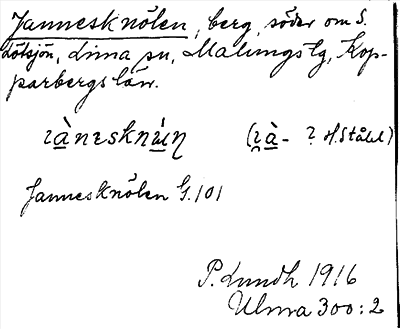 Jannesknölen, berg, söder om S.
Lötsjön, Lima sn, Malungs tg, Kop-
parbergs län.
ꞮànɛsknùꞮn (Ɪà- ? H. Ståhl)
Jannesknölen G. 101
P. Lundh 1916
Ulma 300:2